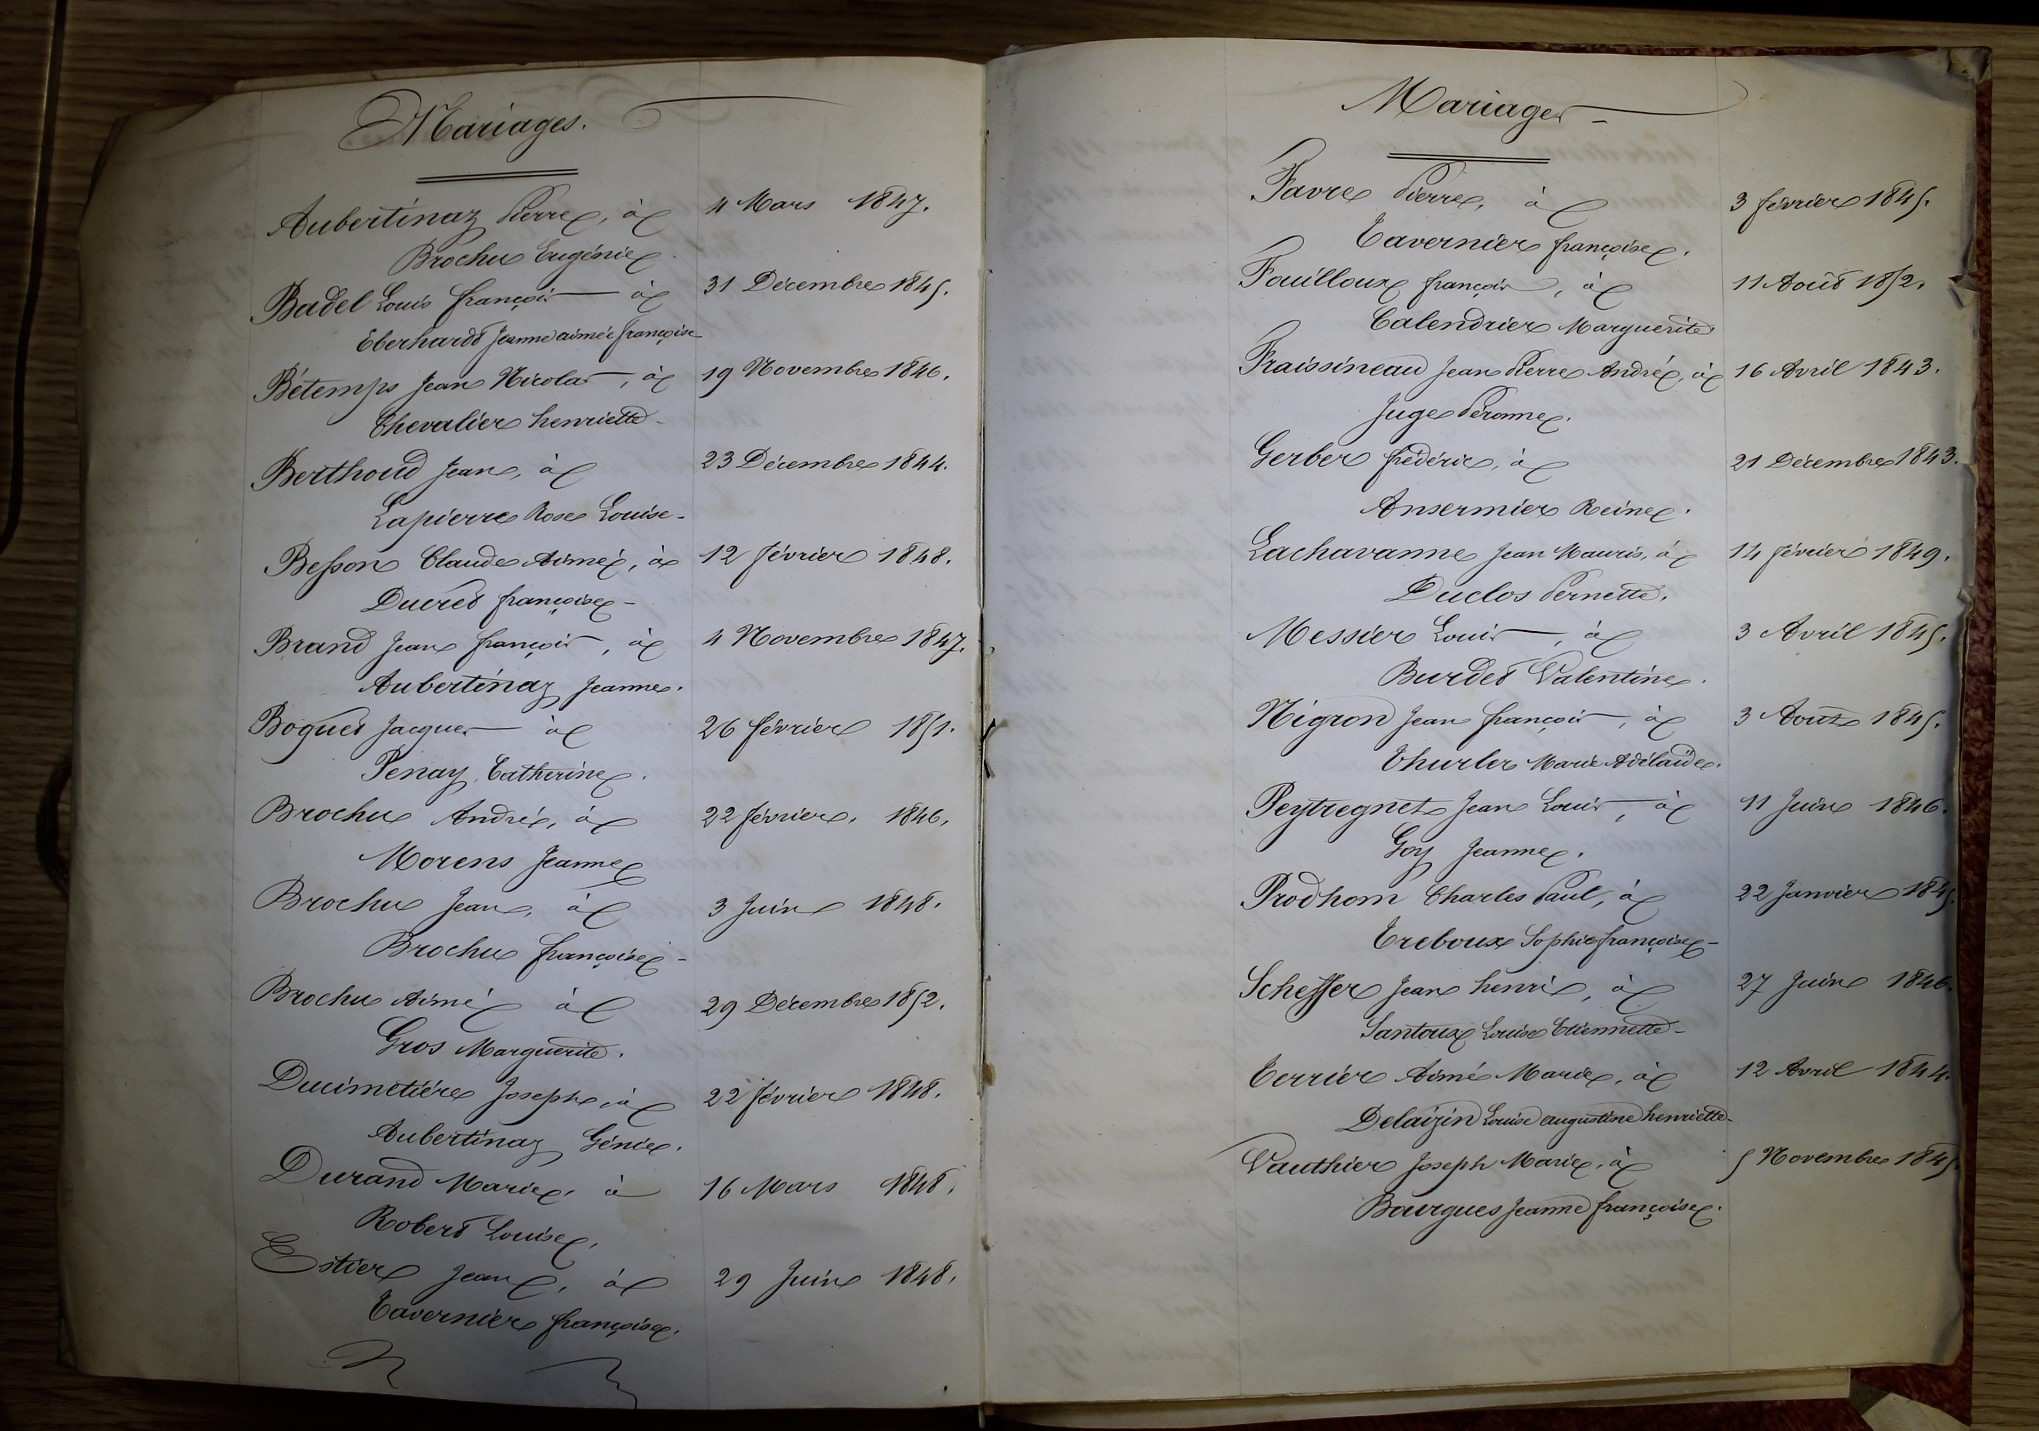 Mariages.
Aubertinaz Pierre, à 4 Mars 1847.
Brochu Eugénie.
Badel Louis françois à 31 Décembre 1845.
Eberhardt Jeanne aimée françoise
Bétemps Jean Nicolas, à 19 Novembre 1846.
Chevalier henriette
Berthoud Jean, à 23 Décembre 1844.
Lapierre Rose Louise
Besson Claude Aimé, à 12 février 1848.
Ducret françoise
Brand Jean françois, à 4 Novembre 1847.
Aubertinaz Jeanne.
Boguet Jacques à 26 février 1851.
Penay Catherine.
Brochu André, à 22 février, 1846.
Morens Jeanne
Brochu Jean, à 3 Juin 1848.
Brochu françoise
Brochu Aimé à 29 Décembre 1852.
Gros Marguerite.
Ducimetière Joseph, à 22 février 1848.
Aubertinaz Génie.
Durand Marie, à 16 Mars 1848.
Robert Louise,
Estier Jean, à 29 Juin 1848.
Tavernier françoise.
Mariages
Favre Pierre, à 3 février 1845.
Tavernier françoise.
Fouilloux françois, à 11 Août 1852.
Calendrier Marguerite
Fraissineau Jean Pierre André, à 16 Avril 1843.
Juge Péronne.
Gerber frédéric, à 21 Décembre 1843.
Ansermier Reine.
Lachavanne Jean Mauris, à 14 février 1849.
Duclos Pernette.
Messier Louis, à 3 Avril 1845.
Burdet Valentine.
Nigron Jean françois, à 3 Août 1845.
Thurler Marie Adélaïde.
Peytregnet Jean Louis, à 11 Juin 1846.
Goy Jeanne.
Prodhom Charles Paul, à 22 Janvier 1845.
Treboux Sophie françoise
Scheffer Jean henri, à 27 Juin 1846.
Santoux Louise Etiennette
Terrier Aimé Marie, à 12 Avril 1844.
Delaizin Louise augustine henriette
Vauthier Joseph Marie, à 5 Novembre 1845.
Bourgues Jeanne françoise.